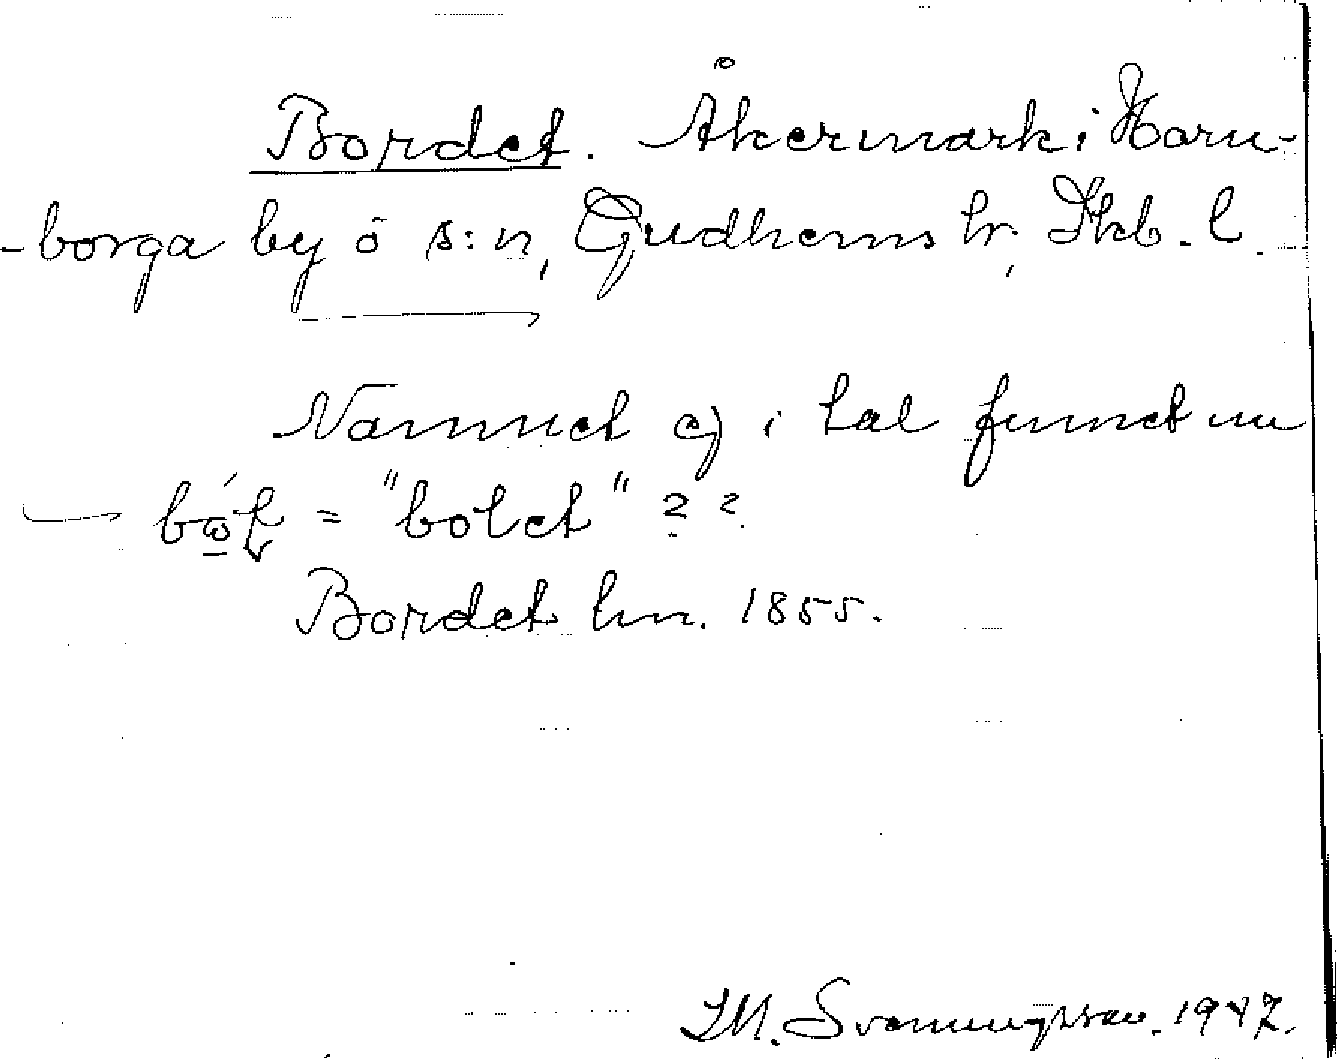 Bordet. Åkermark i Horn-
-borga by o s:n, Gudhems hr, Skb. l.
Namnet ej i tal funnet nu
= "bolet" ? ?
Bordet lm. 1855.
J M. Svenningsson. 1947.